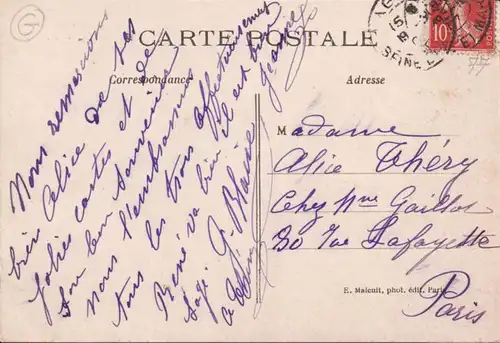 G
CARTE POSTALE
Correspondance
Adresse
10
SEINE
Nous remercions
bien Alice de ses
jolies cartes et de
son bon souvenir
nous l'embrassons
tous les trois affectueusement
René va bien il est bien
sage. G. Blaise
M adame
Alice Théry
Chez Mme Gaillot
30 rue Lafayette
Paris
E. Malcuit, phot. édit. Paris